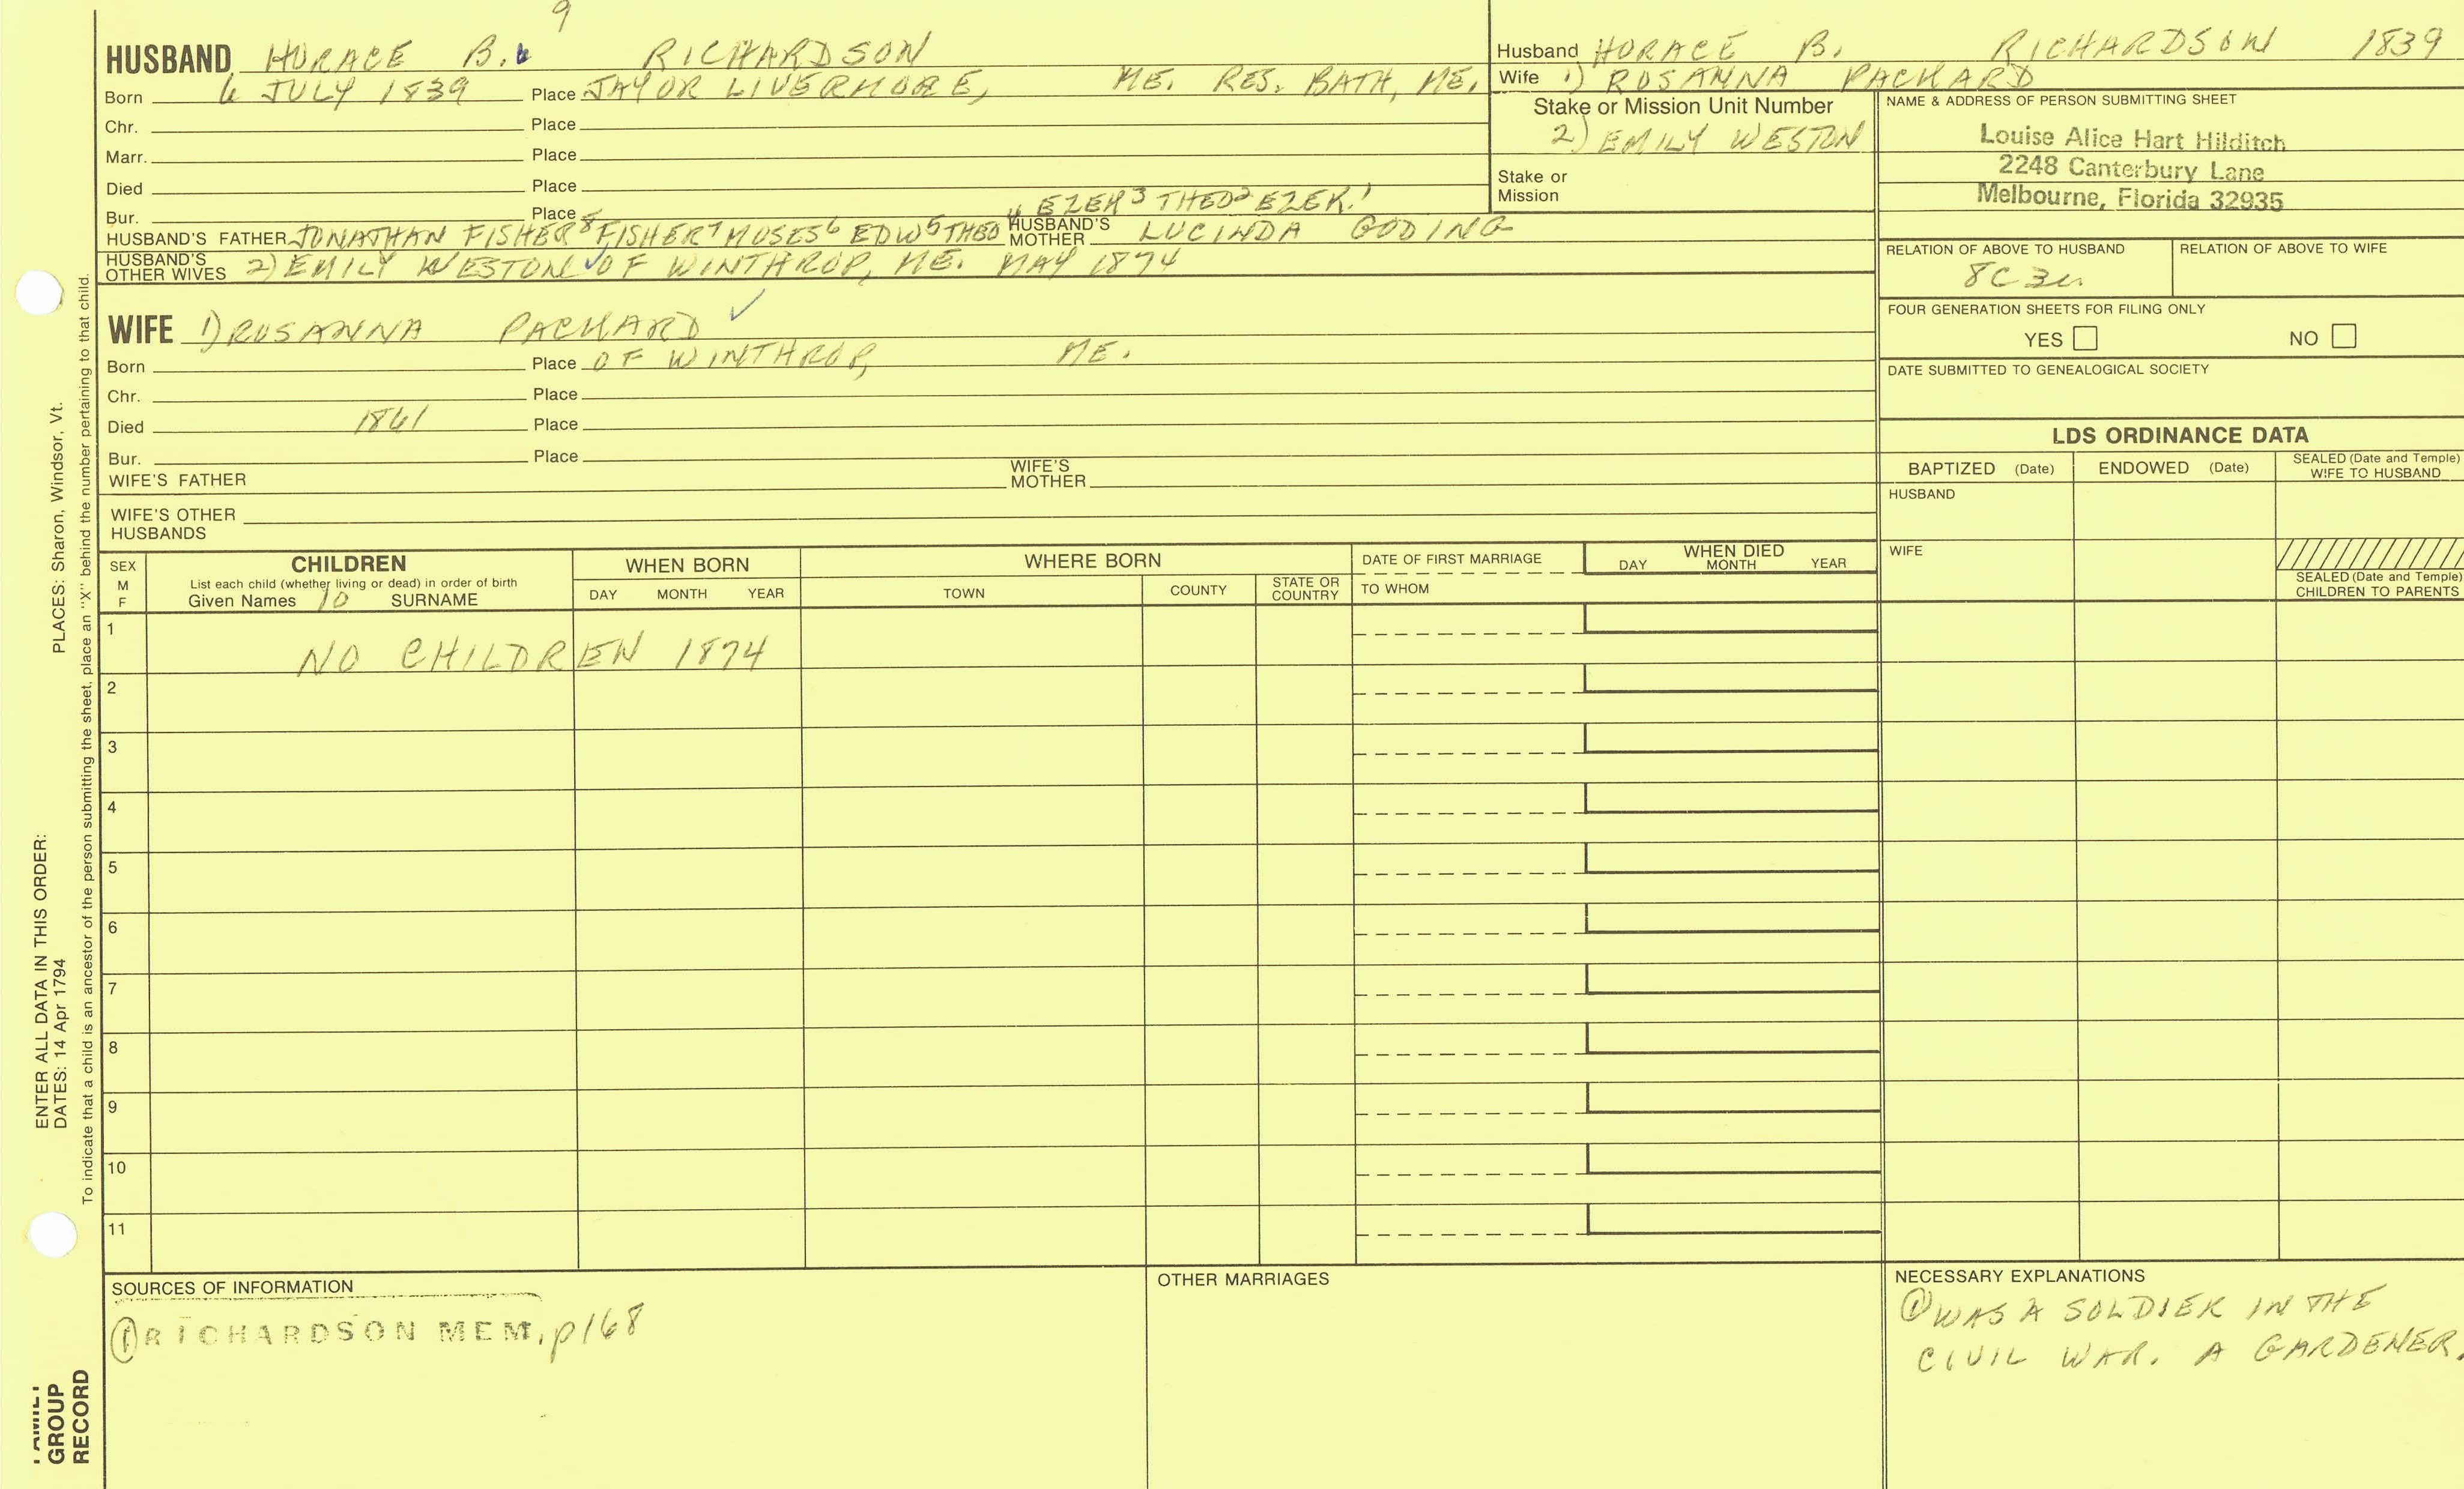 9
HUSBAND HORACE B. RICHARDSON
Born 6 JULY 1839 Place JAY OR LIVERMORE, ME. RES. BATH, ME.
Chr. Place
Marr. Place
Died Place
Bur. Place
4 EZEK3 THEO2 EZEK.1
HUSBAND'S FATHER JONATHAN FISHER8 FISHER7 MOSES6 EDW5 THEO HUSBAND'S MOTHER LUCINDA GODING
HUSBAND'S OTHER WIVES 2) EMILY WESTON ✓ OF WINTHROP, ME. MAY 1874
WIFE 1) ROSANNA PACKARD ✓
Born Place OF WINTHROP, ME.
Chr. Place
Died 1861 Place
Bur. Place
WIFE'S FATHER WIFE'S MOTHER
WIFE'S OTHER HUSBANDS
Husband HORACE B. RICHARDSON 1839
Wife 1) ROSANNA PACKARD
Stake or Mission Unit Number
2) EMILY WESTON
Stake or Mission
NAME & ADDRESS OF PERSON SUBMITTING SHEET
Louise Alice Hart Hilditch
2248 Canterbury Lane
Melbourne, Florida 32935
RELATION OF ABOVE TO HUSBAND RELATION OF ABOVE TO WIFE
8C 3R
FOUR GENERATION SHEETS FOR FILING ONLY
YES NO
DATE SUBMITTED TO GENEALOGICAL SOCIETY
LDS ORDINANCE DATA
BAPTIZED (Date) ENDOWED (Date) SEALED (Date and Temple) WIFE TO HUSBAND
HUSBAND
WIFE
SEALED (Date and Temple) CHILDREN TO PARENTS
SEX M F
CHILDREN
List each child (whether living or dead) in order of birth
Given Names 10 SURNAME
WHEN BORN
DAY MONTH YEAR
WHERE BORN
TOWN COUNTY STATE OR COUNTRY
DATE OF FIRST MARRIAGE
TO WHOM
WHEN DIED
DAY MONTH YEAR
1
NO CHILDREN 1874
2
3
4
5
6
7
8
9
10
11
SOURCES OF INFORMATION
① RICHARDSON MEM, p168
OTHER MARRIAGES
NECESSARY EXPLANATIONS
① WAS A SOLDIER IN THE
CIVIL WAR. A GARDENER.
ENTER ALL DATA IN THIS ORDER:
DATES: 14 Apr 1794 PLACES: Sharon, Windsor, Vt.
To indicate that a child is an ancestor of the person submitting the sheet, place an "X" behind the number pertaining to that child.
FAMILY
GROUP
RECORD